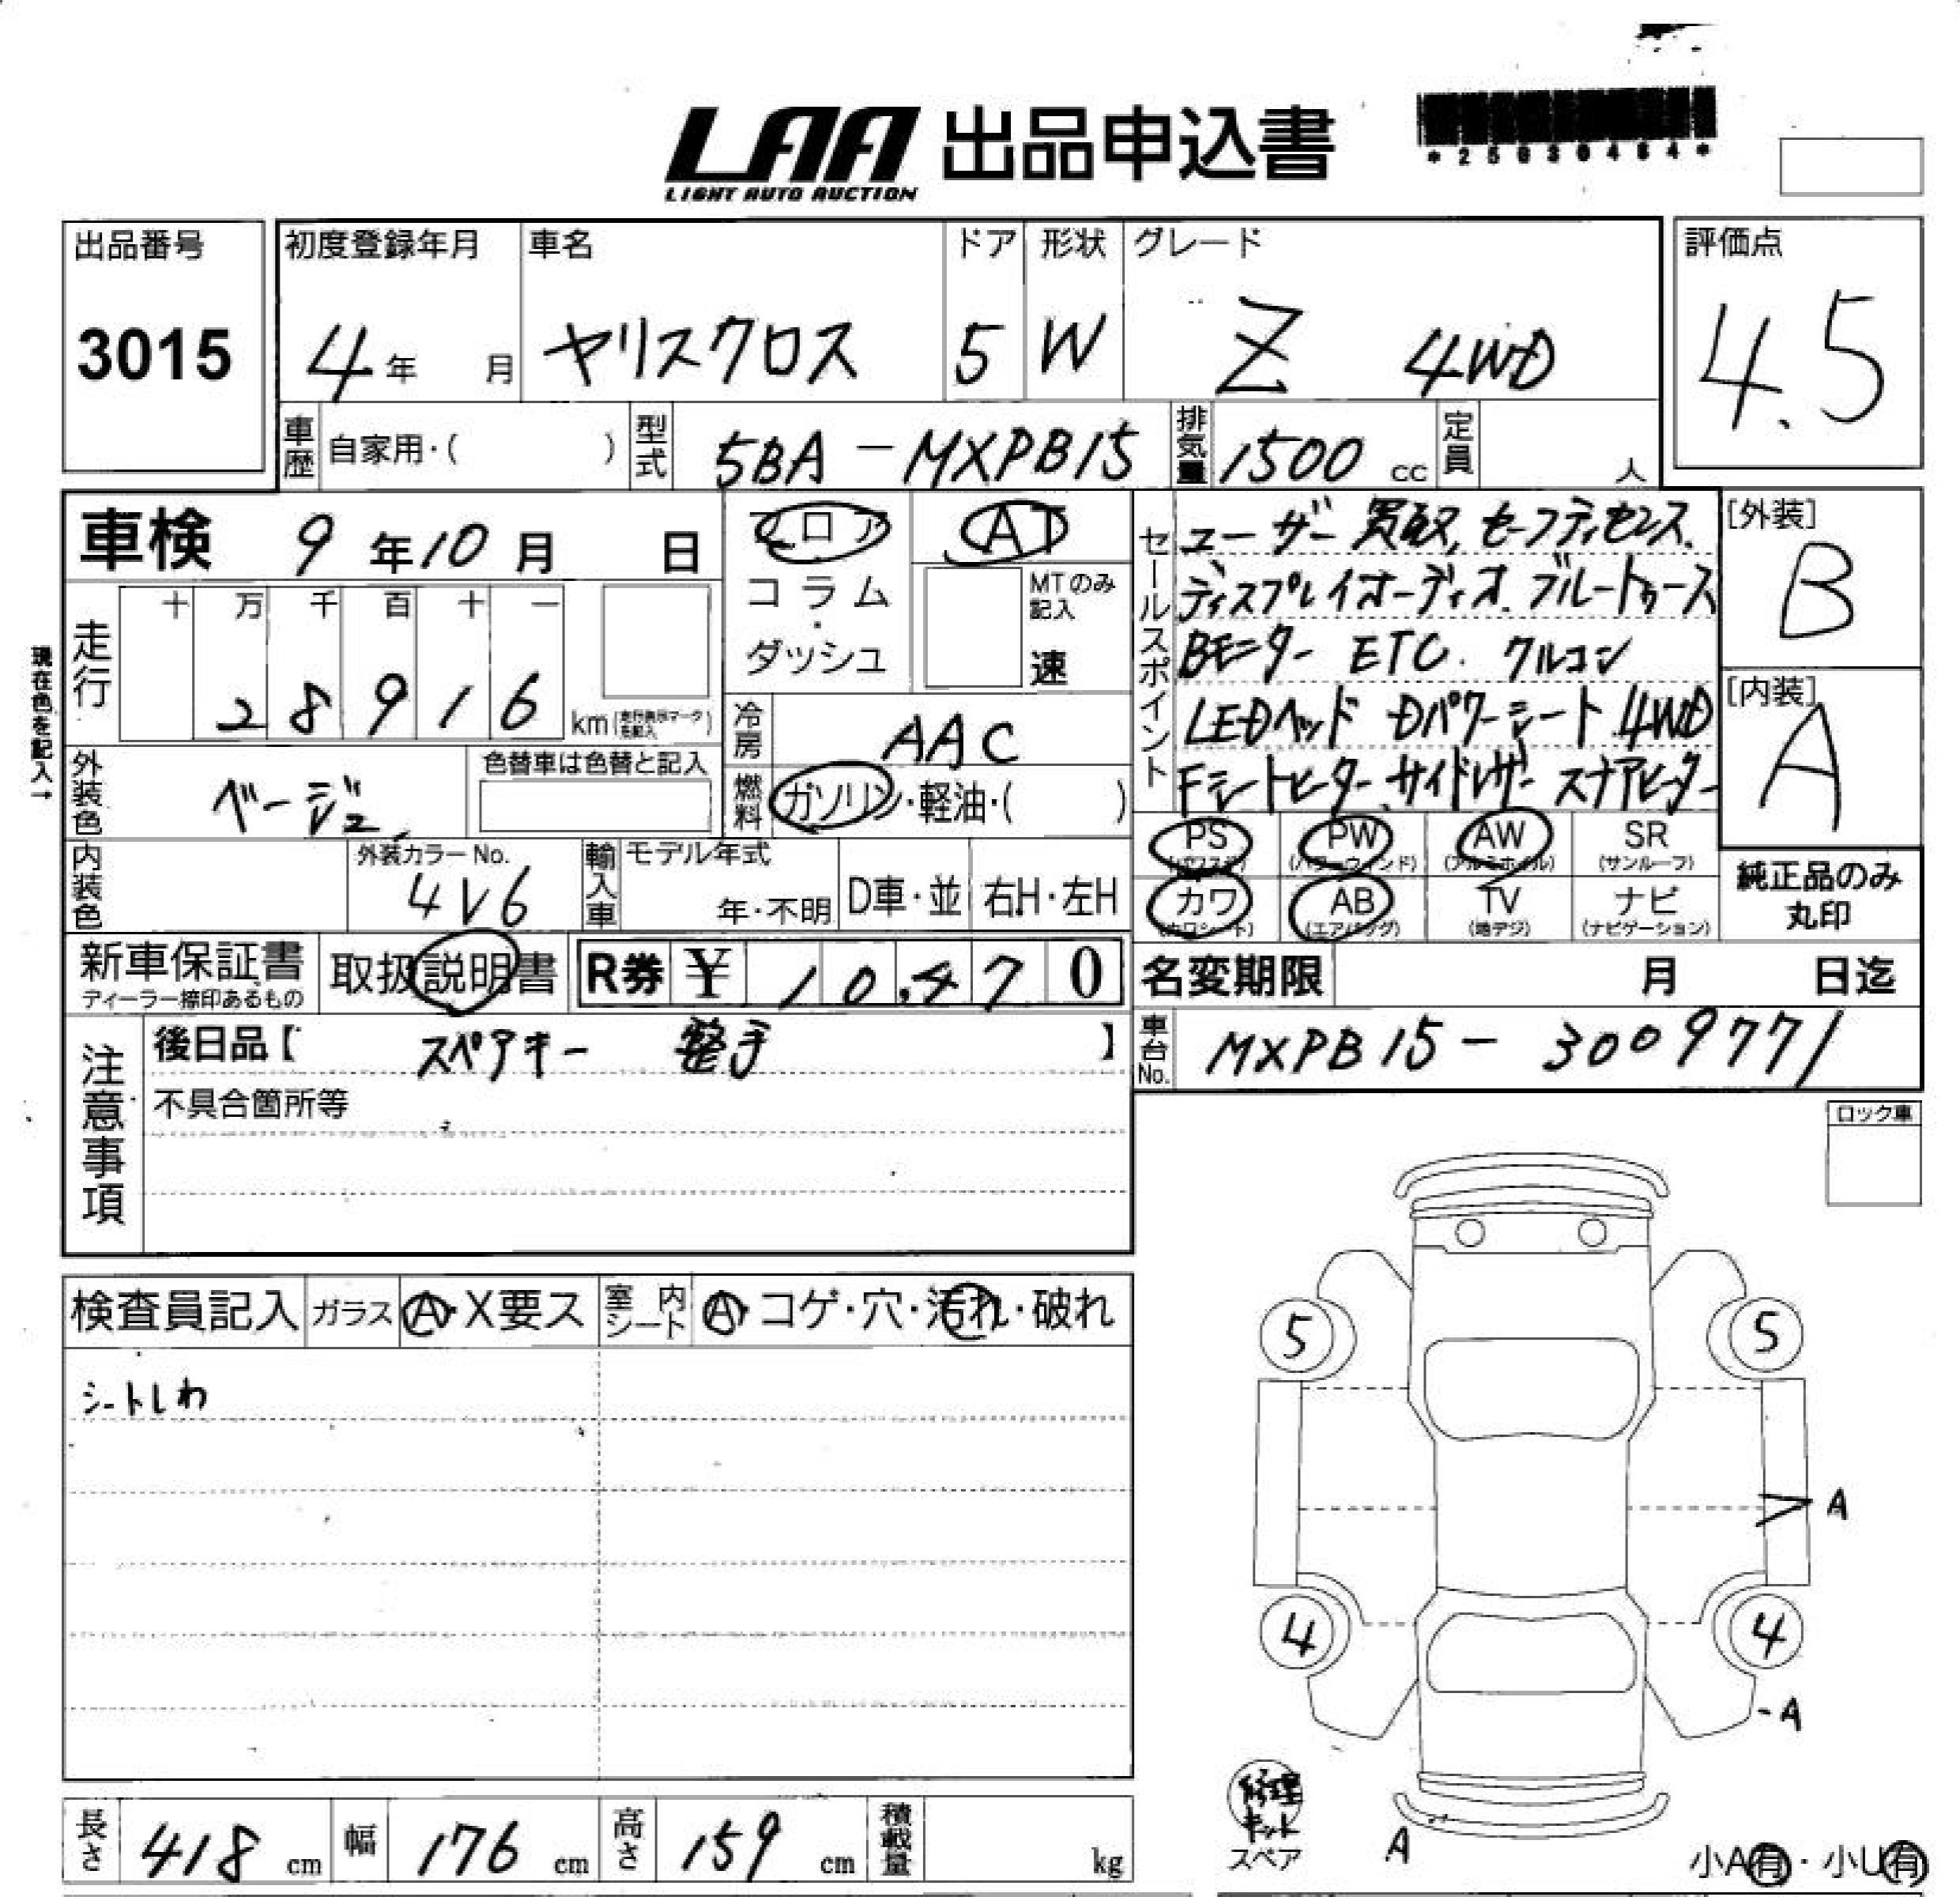 LAA 出品申込書
LIGHT AUTO AUCTION
*25030464*
出品番号
3015
初度登録年月
4年 月
車名
ヤリスクロス
ドア
5
形状
W
グレード
Z 4WD
評価点
4.5
車歴 自家用・( )
型式 5BA-MXPB15
排気量 1500 cc
定員 人
車検 9年10月 日
フロア
コラム・
ダッシュ
AT
MTのみ記入
速
現在色を記入→
走行
十 万 千 百 十 一
2 8 9 1 6 km
冷房 AAC
燃料 ガソリン・軽油・( )
外装色 ベージュ
色替車は色替と記入
内装色
外装カラーNo.
4V6
輸入車
モデル年式
年・不明
D車・並 右H・左H
セールスポイント
ユーザー買取, セーフティセンス.
ディスプレイオーディオ. ブルートゥース
Bモニター ETC. クルコン
LEDヘッド Dパワーシート 4WD
Fシートヒーター. サイドレザー スナアヒーター
[外装]
B
[内装]
A
PS (パワステ) PW (パワーウィンド) AW (アルミホイル) SR (サンルーフ)
カワ (カワシート) AB (エアバッグ) TV (地デジ) ナビ (ナビゲーション)
純正品のみ
丸印
新車保証書
ディーラー捺印あるもの
取扱説明書
R券 ¥ 10,470
名変期限 月 日迄
車台No. MXPB15-3009771
注意事項
後日品【 スペアキー 整手 】
不具合箇所等
ロック車
検査員記入 ガラス A・X要ス 室内シート A・コゲ・穴・汚れ・破れ
シートしわ
5 5
A
4 4
A
修理
キット
スペア
A
小A有・小U有
長さ 418 cm 幅 176 cm 高さ 159 cm 積載量 kg